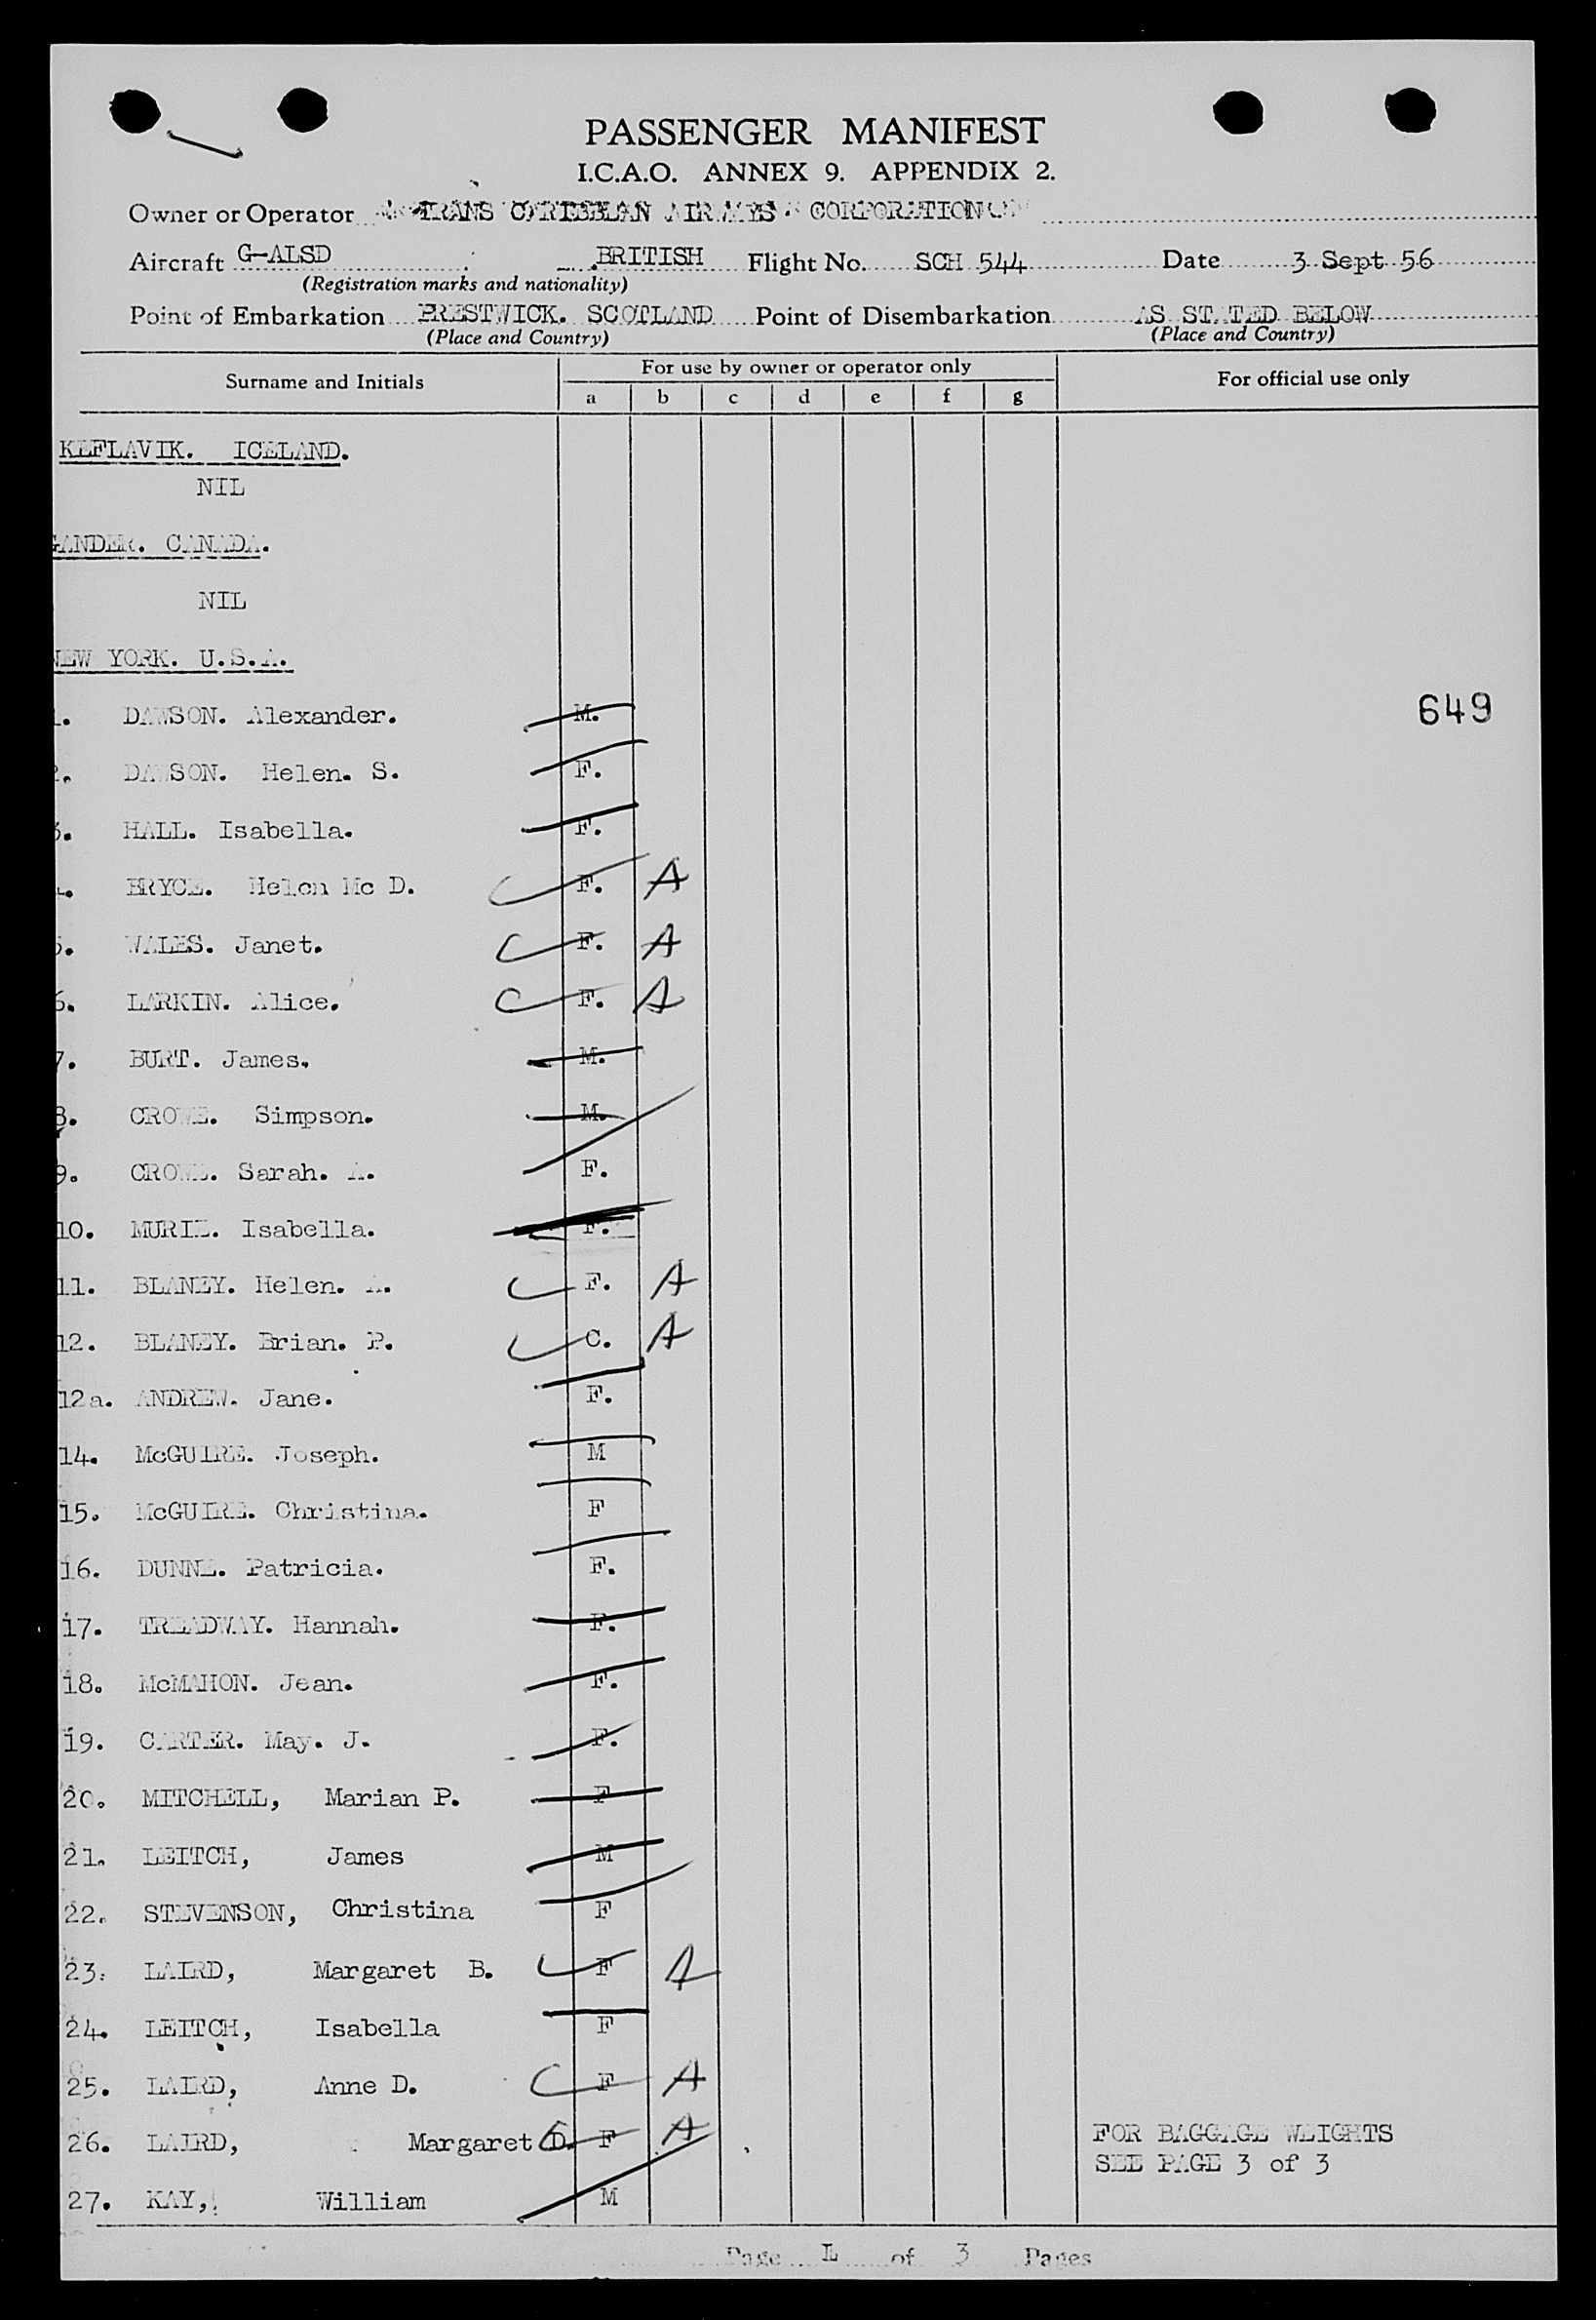 PASSENGER MANIFEST
I.C.A.O. ANNEX 9. APPENDIX 2.
Owner or Operator TRANS CARIBBEAN AIRWAYS CORPORATION
Aircraft G-ALSD BRITISH Flight No. SCH 544 Date 3 Sept 56
(Registration marks and nationality)
Point of Embarkation PRESTWICK. SCOTLAND Point of Disembarkation AS STATED BELOW
(Place and Country) (Place and Country)
Surname and Initials For use by owner or operator only For official use only
a b c d e f g
KEFLAVIK. ICELAND.
NIL
GANDER. CANADA.
NIL
NEW YORK. U.S.A.
1. DAWSON. Alexander. M. 649
2. DAWSON. Helen. S. F.
3. HALL. Isabella. F.
4. BRYCE. Helen Mc D. F. A
5. WALES. Janet. F. A
6. LARKIN. Alice. F. A
7. BURT. James. M.
8. CROWE. Simpson. M.
9. CROWE. Sarah. A. F.
10. MURIE. Isabella. F.
11. BLANEY. Helen. A. F. A
12. BLANEY. Brian. P. C. A
12a. ANDREW. Jane. F.
14. McGUIRE. Joseph. M
15. McGUIRE. Christina. F
16. DUNNE. Patricia. F.
17. TREADWAY. Hannah. F.
18. McMAHON. Jean. F.
19. CARTER. May. J. F.
20. MITCHELL, Marian P. F
21. LEITCH, James M
22. STEVENSON, Christina F
23. LAIRD, Margaret B. F A
24. LEITCH, Isabella F
25. LAIRD, Anne D. F A
26. LAIRD, Margaret D. F A
FOR BAGGAGE WEIGHTS
SEE PAGE 3 of 3
27. KAY, William M
Page 1 of 3 Pages